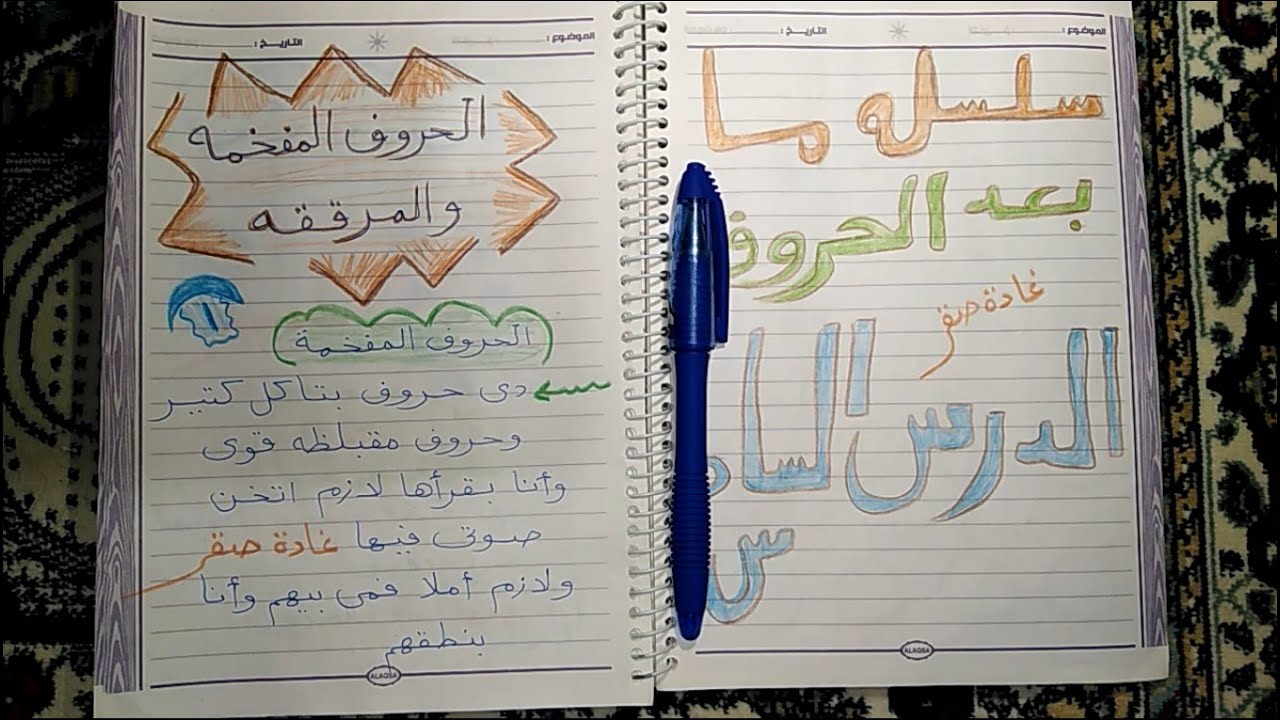 الموضوع :
التاريخ :
سلسله ما
بعد الحروف
غادة صقر
الدرس السا
س
ALAQSA
الموضوع :
التاريخ :
الحروف المفخمه
والمرققه
١
الحروف المفخمة
دى حروف بتاكل كتير
وحروف مقبلظه قوى
وأنا بقرأها لازم اتخن
صوتى فيها غادة صقر
ولازم أملا فمى بيهم وأنا
بنطقهم
ALAQSA